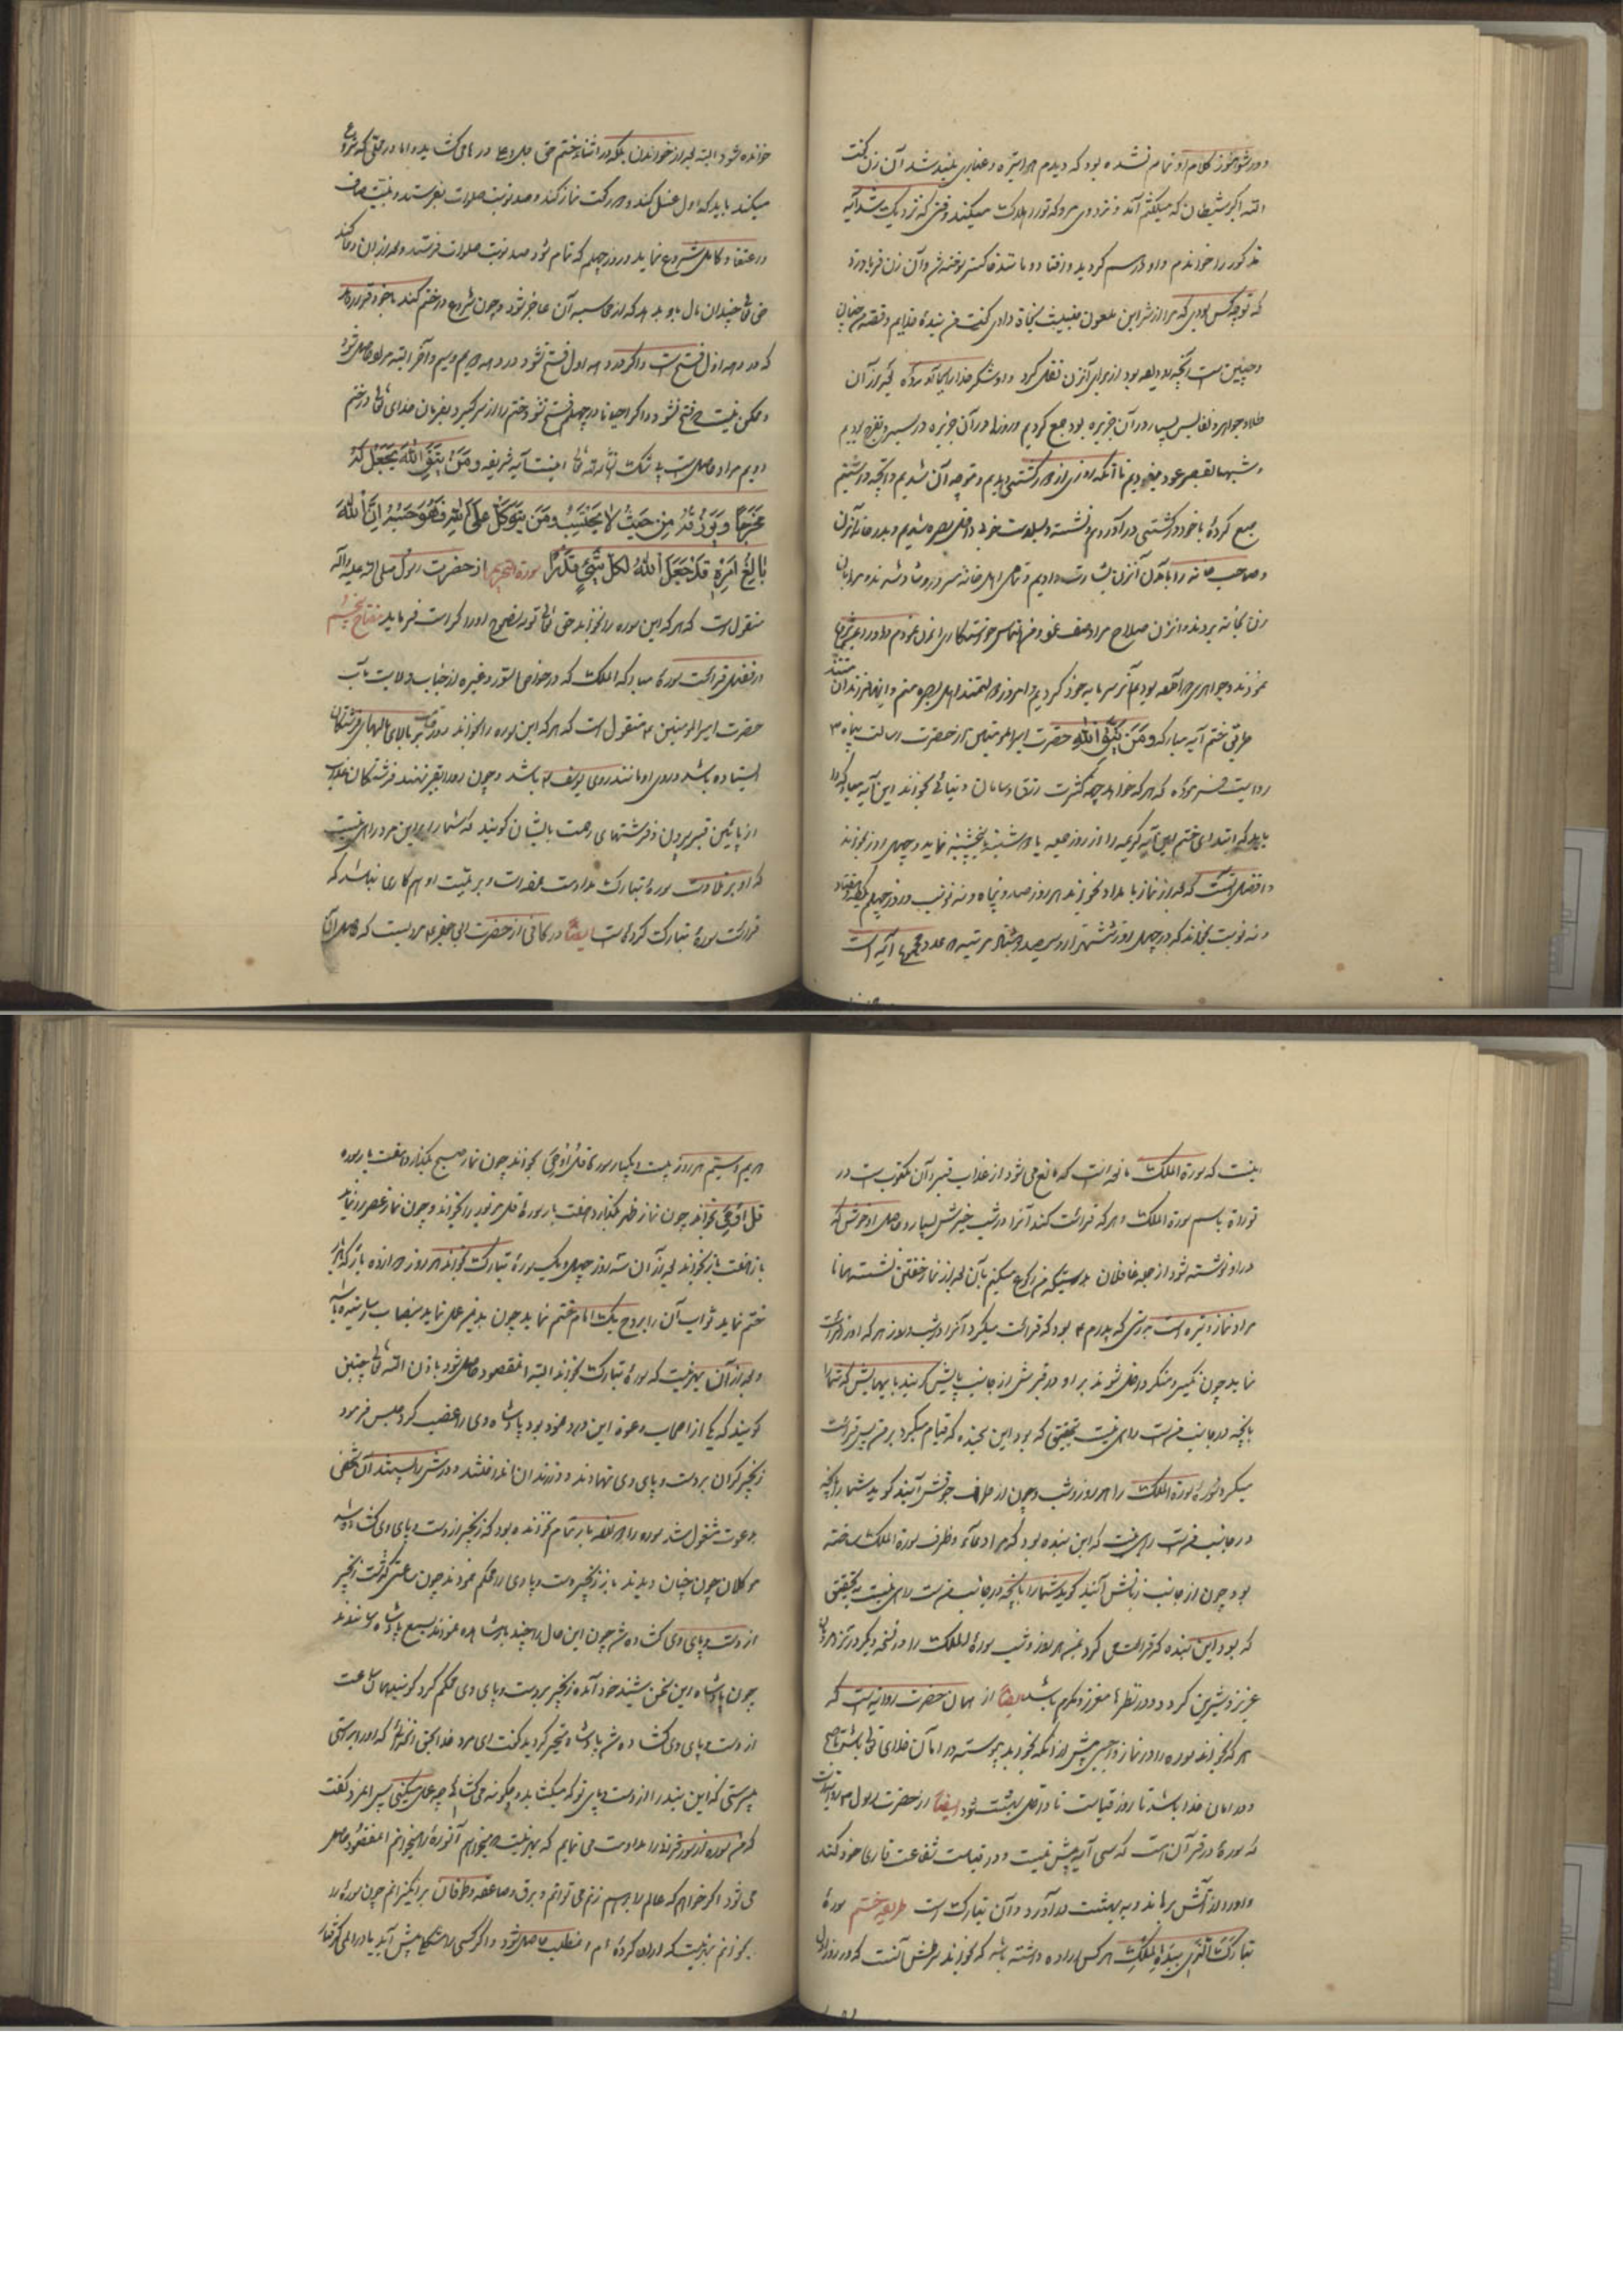 و در شوشوز کلام او تمام نشده بود که دیدم هوا تیره و غباری بلند شد آن زن گفت
الله اکبر شیطان که میگفتم آمد و نزد وی مرو که تو را هلاک میکند وقتی که نزدیک شد آیه
مذکور را خواندم و او از هم کردید و افتاد و مانند خاکستر سوخته شد و آن زن فریاد زد
که تو چه کس بودی که مرا از شر این ملعون خبیث نجاة دادی گفت من بنده خدایم و قصه من چنان
و چنین است آنچه بود همه بود از برای آن زن نقل کرد و او شکر خدا را بجا آورد که بعد از آن
طلا و جواهر و نفایس بسیار در آن جزیره بود جمع کردیم و روزها در آن جزیره در سیر و تفرج بودیم
و شبها بقصر عود مینمودیم تا آنکه روزی از دور کشتی دیدیم و متوجه آن شدیم و آنچه داشتیم
جمع کرده با خود در کشتی در آوردیم و نشسته و بسلامت خود داخل بصره شدیم و بدر خانه آن زن
و صاحب خانه را بآمدن آن زن بشارت دادیم و تمامی اهل خانه مسرور و شاد شدند و همراه آن
زن بخانه بردند و از زن صلاح مرا وصف نمود و من التماس خواستکاری از آن نمودم و او را بمن تزویج
نمودند و جواهری که آنجا بودیم سرمایه خود کردیم و امروز دولتمند اهل بصره منم و اینها فرزندان منند
طریق ختم آیه مبارکه و مَن یَتَّقِ اللهَ حضرت امیر المومنین از حضرت رسالت پناه ص
روایت فرموده که هر که خواهد جهت کثرت رزق و سامان دنیائی بخواند این آیه مبارکه را
باید که ابتدای ختم این آیه کریمه را از روز جمعه یا دوشنبه یا پنجشنبه نماید و چهل روز بخواند
و افضل آنست که بعد از نماز بامداد بخواند هر روز صد و پنجاه و نه نوبت و روز چهلم یکصد و هفتاد
و نه نوبت بخواند که در چهل روز شش هزار و سیصد و هشتاد مرتبه در عدد مجموع آیه است
خوانده شود البته بعد از خواندن بلکه در اثناء ختم حق جل و علا در ها می گشاید و اما در وقتی که شروع
میکند باید که اول غسل کند و دو رکعت نماز کند و صد نوبت صلوات بفرستد و بنیت صاف
و اعتقاد کامل شروع نماید و روز چهلم که تمام شود صد نوبت صلوات فرستد و بعد از آن دعا کند
حق تعالی چندان مال باو بدهد که از محاسبه آن عاجز شود و چون شروع در ختم کند با خود قرار دهد
که در دهه اول فتح است و اگر در دهه اول فتح نشود در دهه دویم و سیم و آخر البته مراد حاصل شود
و ممکن نیست که فتح نشود و اگر احیانا در چهلم فتح نشود ختم را از سر گیرد بفرمان خدای تعالی در ختم
دویم مراد حاصل است بی شک انشاء الله تعالی اینست آیه شریفه وَ مَنْ یَتَّقِ اللهَ یَجْعَلْ لَهُ
مَخْرَجًا وَ یَرْزُقْهُ مِن حَیْثُ لا یَحْتَسِبُ وَ مَن یَتَوَکَّلْ عَلَی اللهِ فَهُوَ حَسْبُهُ اِنَّ اللهَ
بالِغُ اَمْرِهِ قَدْ جَعَلَ اللهُ لِکُلِّ شَیْءٍ قَدْرًا سورة التحریم از حضرت رسول صلی الله علیه و آله
منقول است که هر که این سوره را بخواند حق تعالی توبه نصوح او را کرامت فرماید مفتاح پنجم
در فضل قرائت سوره مبارکه الملک که در خواص السور و غیره از جناب ولایت مآب
حضرت امیر المومنین ع منقول است که هر که این سوره را بخواند روز قیامت بر بالای بالهای فرشتگان
ایستاده باشد و روی او مانند روی یوسف ع باشد و چون او را بقبر نهند فرشتگان عذاب
از پائین قبر بیرون و فرشتهای رحمت بایشان گویند که شما را بر این مرد راهی نیست
که او بر تلاوت سوره تبارک مداومت مینمود است و بر نیت او هم کاری نباشد که
قرائت سوره تبارک کرده است ایضاً در کافی از حضرت ابی جعفر ع مرویست که حاصل آن
اینست که سورة الملک مانعه است که مانع می شود از عذاب قبر و آن مکتوب است در
توراة باسم سورة الملک و هر که قرائت کند آنرا در شب خیرش بسیار و حاصل او خوش که
در او نوشته شود از جمله غافلان بدرستیکه من رکوع میکنم بآن بعد از نماز خفتن نشسته همانا
مراد نماز وتیره است بدرستی که پدرم ع بود که قرائت میکرد آنرا در شب و روز هر که او را قرائت
نماید چون نکیر و منکر داخل شوند بر او در قبرش از جانب پایش گویند پاهایش که شما را
بآنچه در جانب منست راهی نیست بتحقیق که بود این بنده که قیام میکرد بر من پس قرائت
میکرد سوره سورة الملک را هر روز و شب و چون از طرف جوفش آیند گوید شما را بآنچه
در جانب منست راهی نیست که این بنده بود که مرا وعاء و ظرف سورة الملک ساخته
بود چون از جانب زبانش آیند گوید شما را بآنچه در جانب منست راهی نیست بتحقیق
که بود این بنده که قرائت می کرد بمن هر روز و شب سورة الملک را و در نسخه دیگر در نزد هر کس
عزیز و شیرین گردد و در نظرها معزز و مکرم باشد ایضاً از همان حضرت روایتست که
هر که بخواند سوره را در نماز واجبی پیش از آنکه بخوابد پیوسته در امان خدای تعالی باشد تا صبح
و در امان خدا باشد تا روز قیامت تا داخل بهشت شود ایضاً از حضرت رسول ص روایتست
که سوره در قرآن است که سی آیه بیش نیست و در قیامت شفاعت قاری خود کند
و او را از آتش برهاند و به بهشت در آورد و آن تبارک است طریق ختم سوره
تَبارَکَ الَّذِی بِیَدِهِ المُلْکُ هر کس اراده داشته باشد که بخواند طریقش آنست که در روز اول
دویم و سیم هر روز بیست و یکبار سوره قل اُوحِیَ بخواند چون نماز صبح بگذارد هفت بار سوره
قل اُوحِیَ بخواند چون نماز ظهر بگذارد هفت بار سوره قل مزبور را بخواند و چون نماز عصر را نماید
باز هفت بار بخواند بعد از آن سه روز چهل و یک سوره تبارک بخواند هر روز دوازده بار که بار
ختم نماید ثواب آن را بروح یک امام ختم نماید چون بدین عمل نماید بنصاب رسانیده باشد
و بعد از آن بهر نیت که سوره تبارک بخواند البته آن مقصود حاصل شود باذن الله تعالی چنین
گویند که یکی از اصحاب دعوة این ورد نموده بود پادشاه وی را غضب کرد و حبس فرمود
زنجیر گران بر دست و پای وی نهادند و در زندان انداختند و درش را ببستند آن شخص
بدعوت مشغول شد سوره را هر هفده بار تمام نخوانده بود که زنجیر از دست و پای وی گشاده شد
موکلان چون چنان دیدند باز زنجیر دست و پای وی را محکم نمودند چون ساعتی گذشت زنجیر
از دست و پای وی گشاده شد چون این حال را چند بار مشاهده نمودند بسمع پادشاه رسانیدند
چون پادشاه این سخن شنید خود آمده زنجیر بر دست و پای وی محکم کرد گویند همان ساعت
از دست و پای وی گشاده شد پادشاه متحیر گردید گفت ای مرد خدا بحق آنخدائی که او را پرستی
میپرستی که این بند را از دست و پای تو که میگشاید و چگونه می گشائی چه عمل میکنی پس آنمرد گفت
که من سوره از سور قرآنرا مداومت می نمایم که بهر نیت میخوانم آن سوره را میخوانم آن مقصود حاصل
می شود اگر خواهم که عالم را بر هم زنم می توانم و برق و صاعقه و طوفان بر انگیزانم چون سوره را
بخوانم بهر نیت که اراده کرده ام آن مطلب حاصل شود و اگر کسی را مشکلی پیش آید یا در المی گرفتار